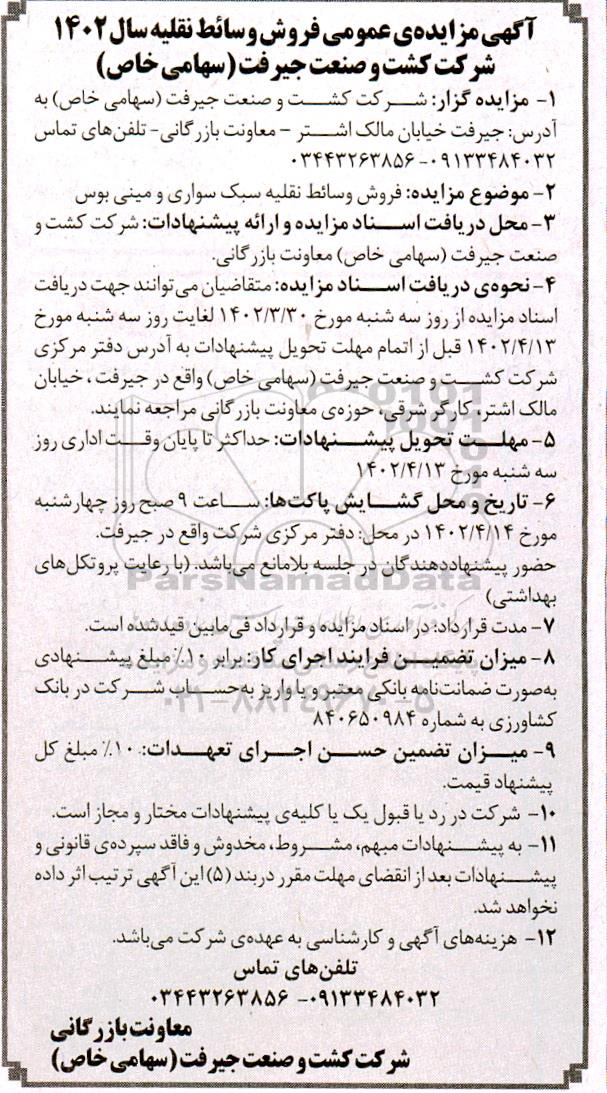 آگهی مزایده‌ی عمومی فروش وسائط نقلیه سال ۱۴۰۲
شرکت کشت و صنعت جیرفت (سهامی خاص)
۱- مزایده گزار: شرکت کشت و صنعت جیرفت (سهامی خاص) به
آدرس: جیرفت خیابان مالک اشتر – معاونت بازرگانی- تلفن‌های تماس
۰۹۱۳۳۴۸۴۰۳۲- ۰۳۴۴۳۲۶۳۸۵۶
۲- موضوع مزایده: فروش وسائط نقلیه سبک سواری و مینی بوس
۳- محل دریافت اسناد مزایده و ارائه پیشنهادات: شرکت کشت و
صنعت جیرفت (سهامی خاص) معاونت بازرگانی.
۴- نحوه‌ی دریافت اسناد مزایده: متقاضیان می‌توانند جهت دریافت
اسناد مزایده از روز سه شنبه مورخ ۱۴۰۲/۳/۳۰ لغایت روز سه شنبه مورخ
۱۴۰۲/۴/۱۳ قبل از اتمام مهلت تحویل پیشنهادات به آدرس دفتر مرکزی
شرکت کشت و صنعت جیرفت (سهامی خاص) واقع در جیرفت ، خیابان
مالک اشتر، کارگر شرقی، حوزه‌ی معاونت بازرگانی مراجعه نمایند.
۵- مهلت تحویل پیشنهادات: حداکثر تا پایان وقت اداری روز
سه شنبه مورخ ۱۴۰۲/۴/۱۳
۶- تاریخ و محل گشایش پاکت‌ها: ساعت ۹ صبح روز چهارشنبه
مورخ ۱۴۰۲/۴/۱۴ در محل: دفتر مرکزی شرکت واقع در جیرفت.
حضور پیشنهاددهندگان در جلسه بلامانع می‌باشد. (با رعایت پروتکل‌های
بهداشتی)
ParsNamadData
۷- مدت قرارداد: در اسناد مزایده و قرارداد فی‌مابین قیدشده است.
۸- میزان تضمین فرایند اجرای کار: برابر ۱۰٪ مبلغ پیشنهادی
به‌صورت ضمانت‌نامه بانکی معتبر و یا واریز به‌حساب شرکت در بانک
کشاورزی به شماره ۸۴۰۶۵۰۹۸۴
۰۲۱-۸۸۳۴۹۶۷۰-۵
۹- میزان تضمین حسن اجرای تعهدات: ۱۰٪ مبلغ کل
پیشنهاد قیمت.
۱۰- شرکت در رد یا قبول یک یا کلیه‌ی پیشنهادات مختار و مجاز است.
۱۱- به پیشنهادات مبهم، مشروط، مخدوش و فاقد سپرده‌ی قانونی و
پیشنهادات بعد از انقضای مهلت مقرر دربند (۵) این آگهی ترتیب اثر داده
نخواهد شد.
۱۲- هزینه‌های آگهی و کارشناسی به عهده‌ی شرکت می‌باشد.
تلفن‌های تماس
۰۹۱۳۳۴۸۴۰۳۲- ۰۳۴۴۳۲۶۳۸۵۶
معاونت بازرگانی
شرکت کشت و صنعت جیرفت (سهامی خاص)